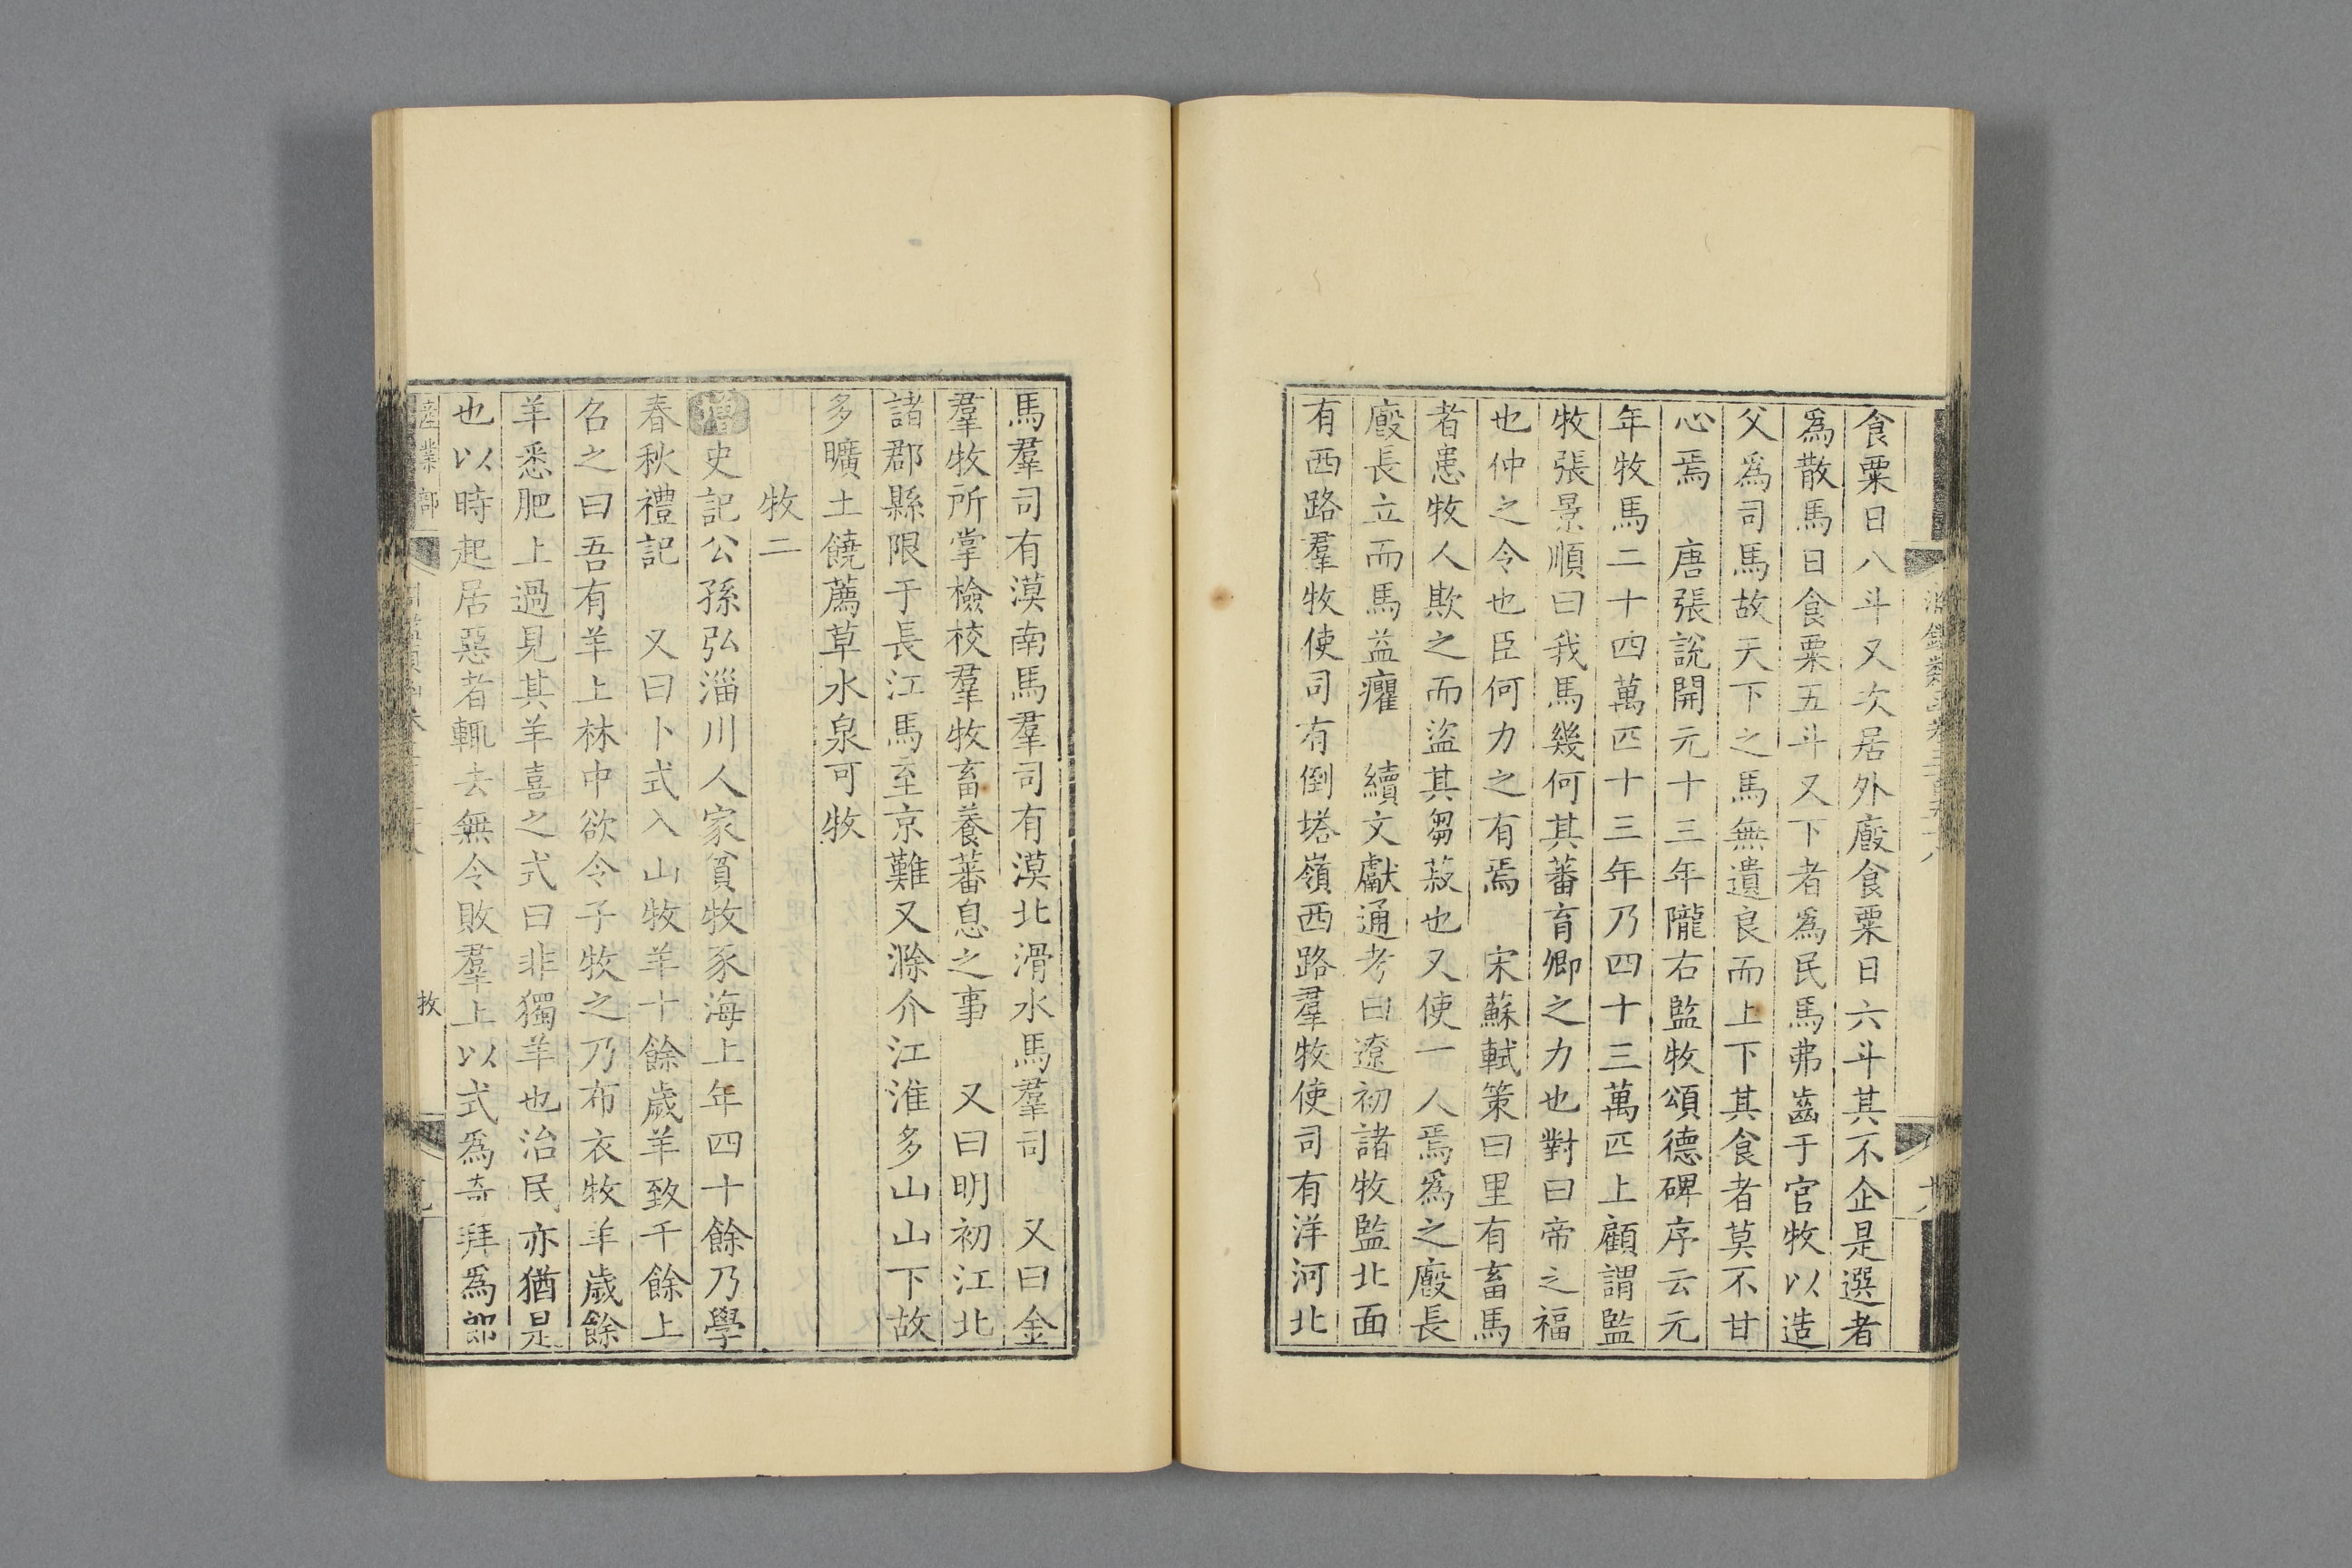 食粟日八斗又次居外廄食粟日六斗其不企是選者
爲散馬日食粟五斗又下者爲民馬弗齒于官牧以造
父爲司馬故天下之馬無遺良而上下其食者莫不甘
心焉　唐張說開元十三年隴右監牧頌德碑序云元
年牧馬二十四萬匹十三年乃四十三萬匹上顧謂監
牧張景順曰我馬幾何其蕃育卿之力也對曰帝之福
也仲之令也臣何力之有焉　宋蘇軾策曰里有畜馬
者患牧人欺之而盜其芻菽也又使一人焉爲之廄長
廄長立而馬益癯　續文獻通考曰遼初諸牧監北面
有西路羣牧使司有倒塔嶺西路羣牧使司有洋河北
馬羣司有漠南馬羣司有漠北滑水馬羣司　又曰金
羣牧所掌檢校羣牧畜養蕃息之事　又曰明初江北
諸郡縣限于長江馬至京難又滁介江淮多山山下故
多曠土饒薦草水泉可牧
牧二
增史記公孫弘淄川人家貧牧豕海上年四十餘乃學
春秋禮記　又曰卜式入山牧羊十餘歲羊致千餘上
名之曰吾有羊上林中欲令子牧之乃布衣牧羊歲餘
羊悉肥上過見其羊喜之式曰非獨羊也治民亦猶是
也以時起居惡者輒去無令敗羣上以式爲奇拜爲郎
產業部
牧